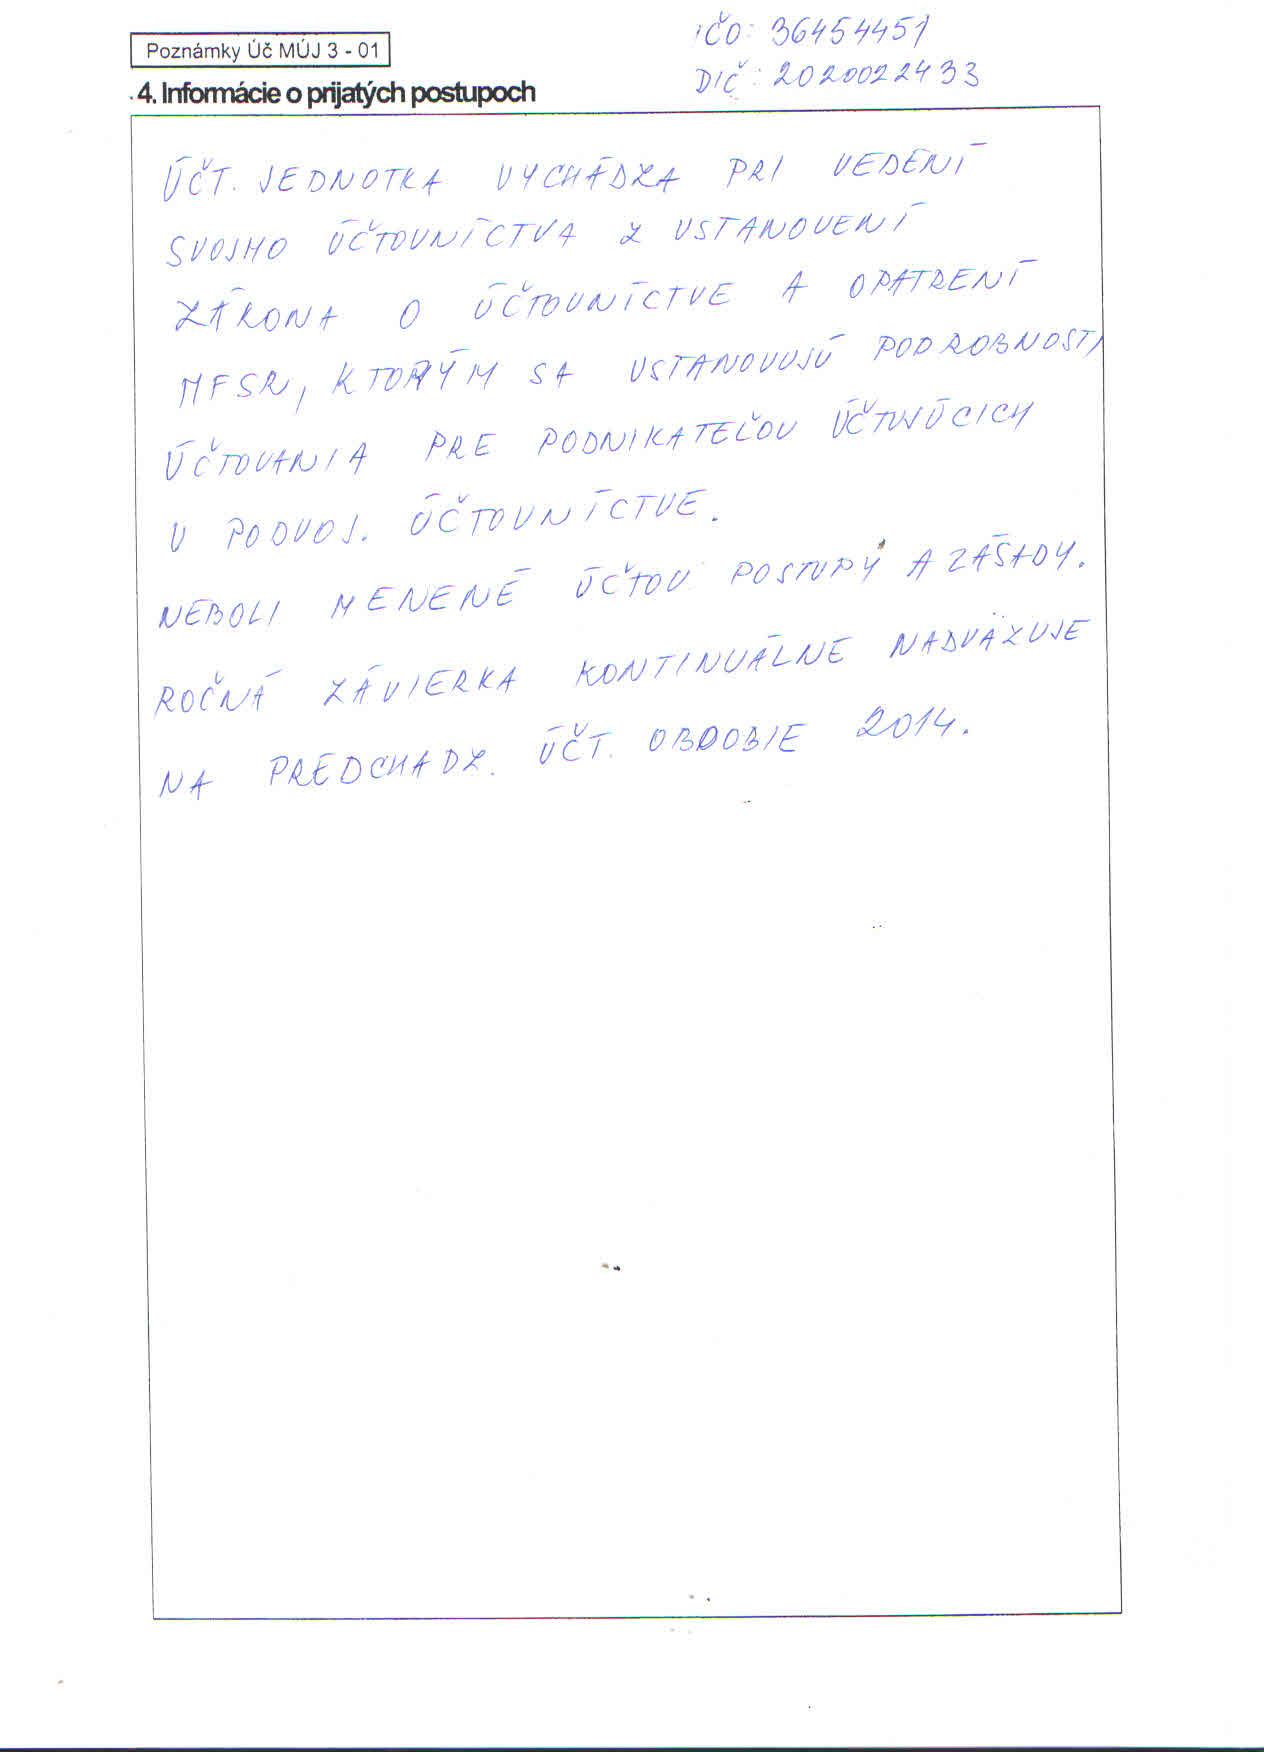 IČO: 36454451
Poznámky Úč MÚJ 3 - 01
DIČ: 2020022433
4. Informácie o prijatých postupoch
ÚČT. JEDNOTKA VYCHÁDZA PRI VEDENÍ
SVOJHO ÚČTOVNÍCTVA Z USTANOVENÍ
ZÁKONA O ÚČTOVNÍCTVE A OPATRENÍ
MFSR, KTORÝM SA USTANOVUJÚ PODROBNOSTI
ÚČTOVANIA PRE PODNIKATEĽOV ÚČTUJÚCICH
V PODVOJ. ÚČTOVNÍCTVE.
NEBOLI MENENÉ ÚČTOV. POSTUPY A ZÁSADY.
ROČNÁ ZÁVIERKA KONTINUÁLNE NADVÄZUJE
NA PREDCHÁDZ. ÚČT. OBDOBIE 2014.